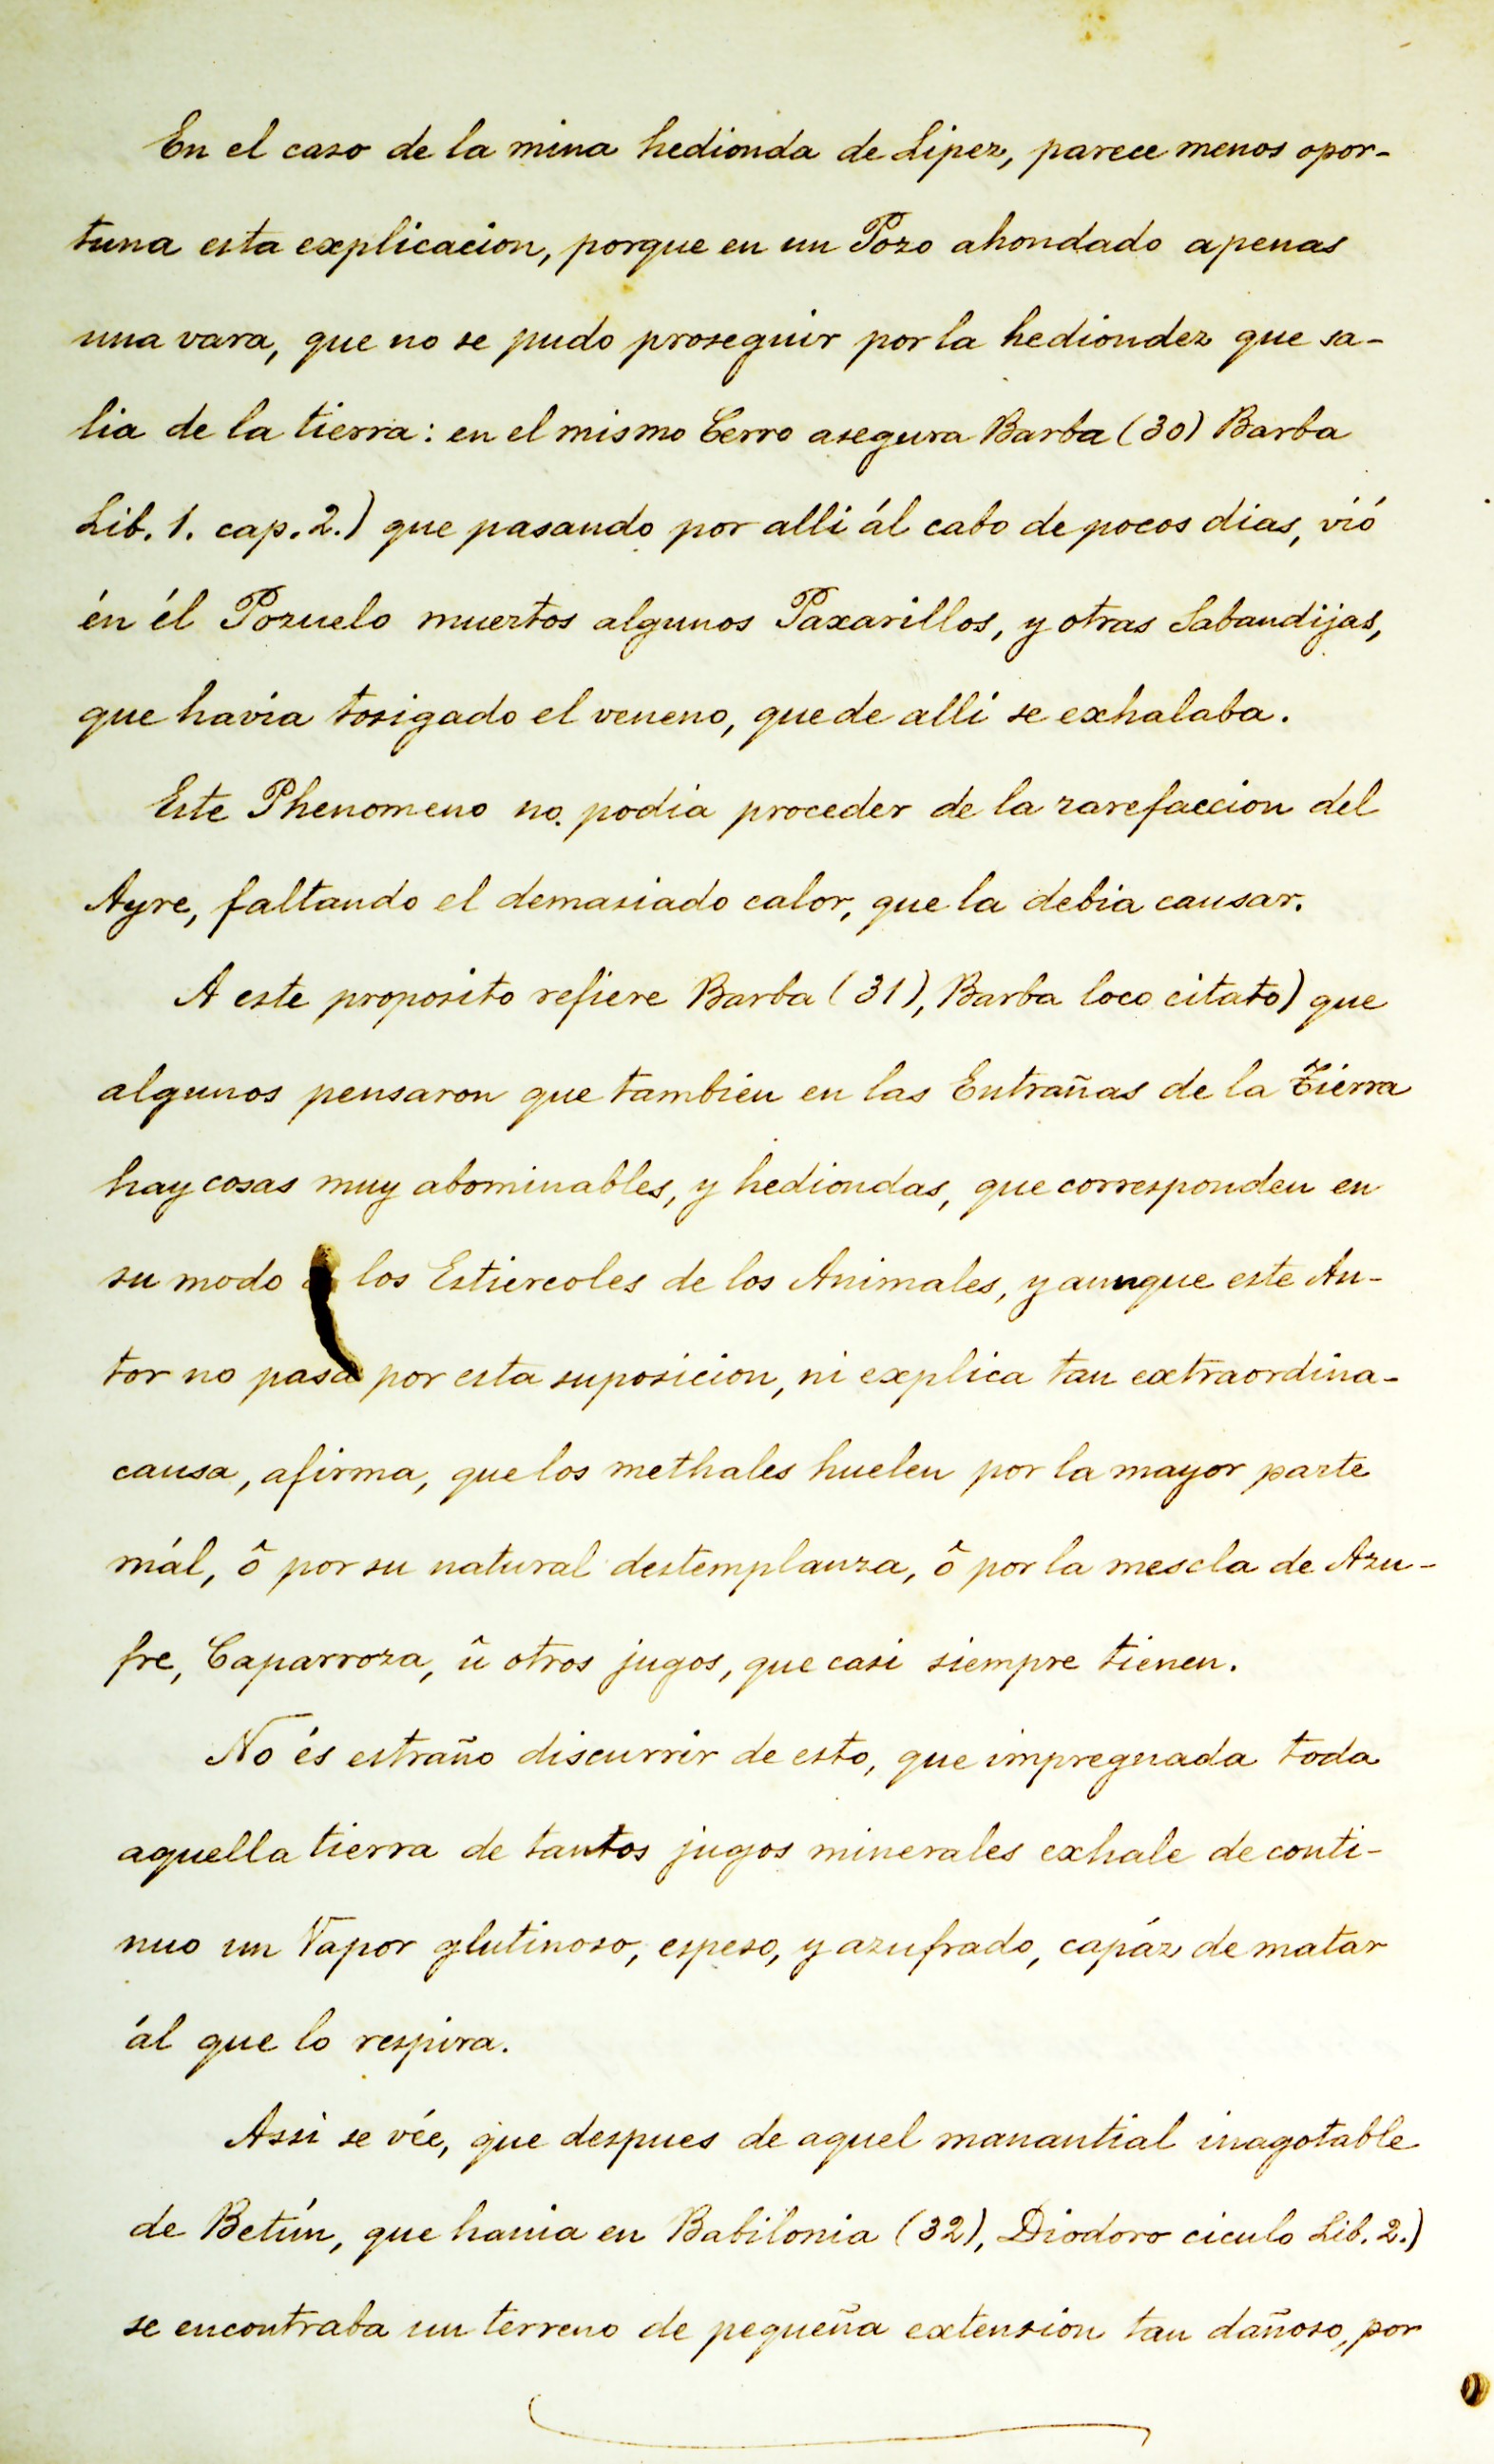 En el caso de la mina hedionda de Lipez, parece menos opor-
tuna esta explicacion, porque en un Pozo ahondado apenas
una vara, que no se pudo proseguir por la hediondez que sa-
lia de la tierra: en el mismo Cerro asegura Barba (30) Barba
Lib. 1. cap. 2.) que pasando por alli ál cabo de pocos dias, vió
én él Pozuelo muertos algunos Paxarillos, y otras Sabandijas,
que havia tosigado el veneno, que de alli se exhalaba.
Este Phenomeno no podia proceder de la rarefaccion del
Ayre, faltando el demasiado calor, que la debia causar.
A este proposito refiere Barba (31), Barba loco citato) que
algunos pensaron que tambien en las Entrañas de la Tierra
hay cosas muy abominables, y hediondas, que corresponden en
su modo los Estiercoles de los Animales, y aunque este Au-
tor no pasa por esta suposicion, ni explica tan extraordina-
causa, afirma, que los methales huelen por la mayor parte
mál, ô por su natural destemplanza, ô por la mescla de Azu-
fre, Caparroza, û otros jugos, que casi siempre tienen.
No és estraño discurrir de esto, que impregnada toda
aquella tierra de tantos jugos minerales exhale de conti-
nuo un Vapor glutinoso, espeso, y azufrado, capáz de matar
ál que lo respira.
Assi se vée, que despues de aquel manantial inagotable
de Betún, que havia en Babilonia (32), Diodoro ciculo Lib. 2.)
se encontraba un terreno de pequeña extension tan dañoso, por